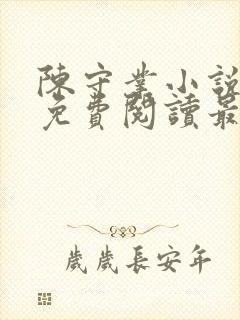 陳守業小說
免費閱讀最
歲歲長安年